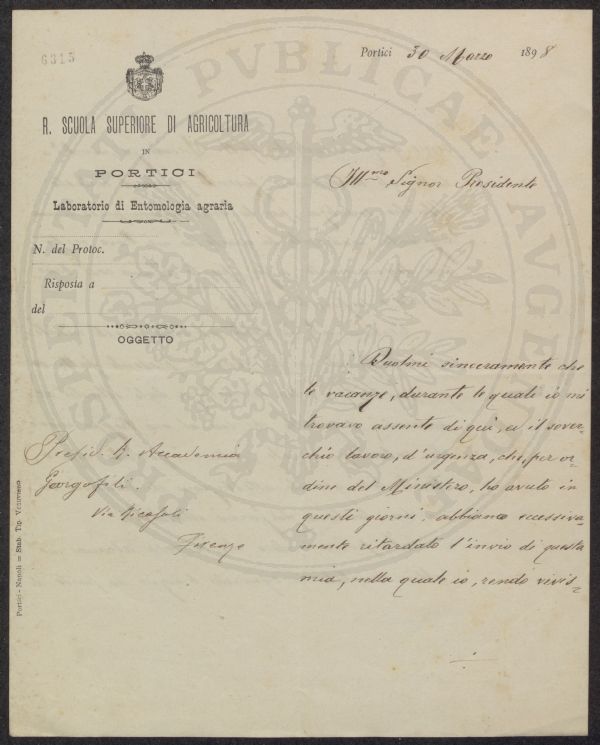 6315
Portici 30 Marzo 1898
R. SCUOLA SUPERIORE DI AGRICOLTURA
IN
PORTICI
Laboratorio di Entomologia agraria
N. del Protoc.
Risposta a
del
OGGETTO
Ill.mo Signor Presidente
Duolmi sinceramente che
le vacanze, durante le quali io mi
trovavo assente di quì, e il sover-
chio lavoro, d'urgenza, che, per or-
dine del Ministero, ho avuto in
questi giorni, abbiano eccessiva-
mente ritardato l'invio di questa
mia, nella quale io, rendo vivis-
Presid. R. Accademia
Georgofili.
Via Ricasoli
Firenze
Portici - Napoli = Stab. Tip. Vesuviano
PUBLICAE